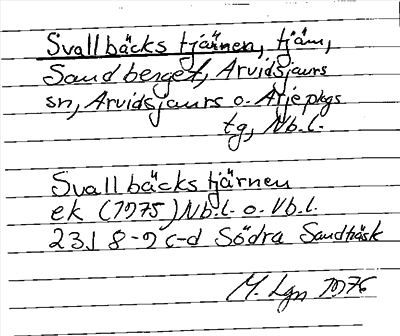 Svallbäckstjärnen, tjärn,
Sandberget, Arvidsjaurs
sn, Arvidsjaurs o. Arjeplogs
tg, Nb.l.
Svallbäckstjärnen
ek (1975) Nb.l. o. Vb.l.
23J 8-9 c-d Södra Sandträsk
M. Lgn 1976